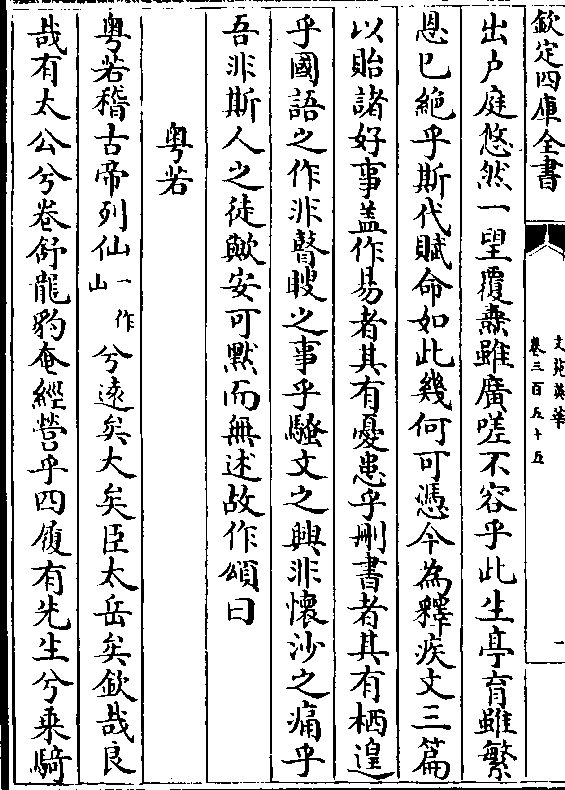 欽定四庫全書
文苑英華
卷三百五十五
一
出户庭悠然一望覆燾雖廣嗟不容乎此生亭育雖繁
恩已絶乎斯代賦命如此幾何可憑今為釋疾文三篇
以貽諸好事蓋作易者其有憂患乎刪書者其有栖遑
乎國語之作非瞽瞍之事乎騷文之興非懷沙之痛乎
吾非斯人之徒歟安可默而無述故作頌曰
粤若
粤若稽古帝列仙一作山兮遠矣大矣臣太岳矣欽哉良
哉有太公兮卷舒龍豹奄經營乎四履有先生兮乘騎